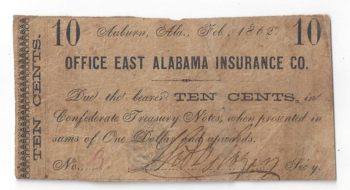 10 Auburn, Ala., Feb., 1863. 10
OFFICE EAST ALABAMA INSURANCE CO.
Due the bearer TEN CENTS, in
Confederate Treasury Notes, when presented in
sums of One Dollar and upwards.
No. Sec'y.
TEN CENTS.